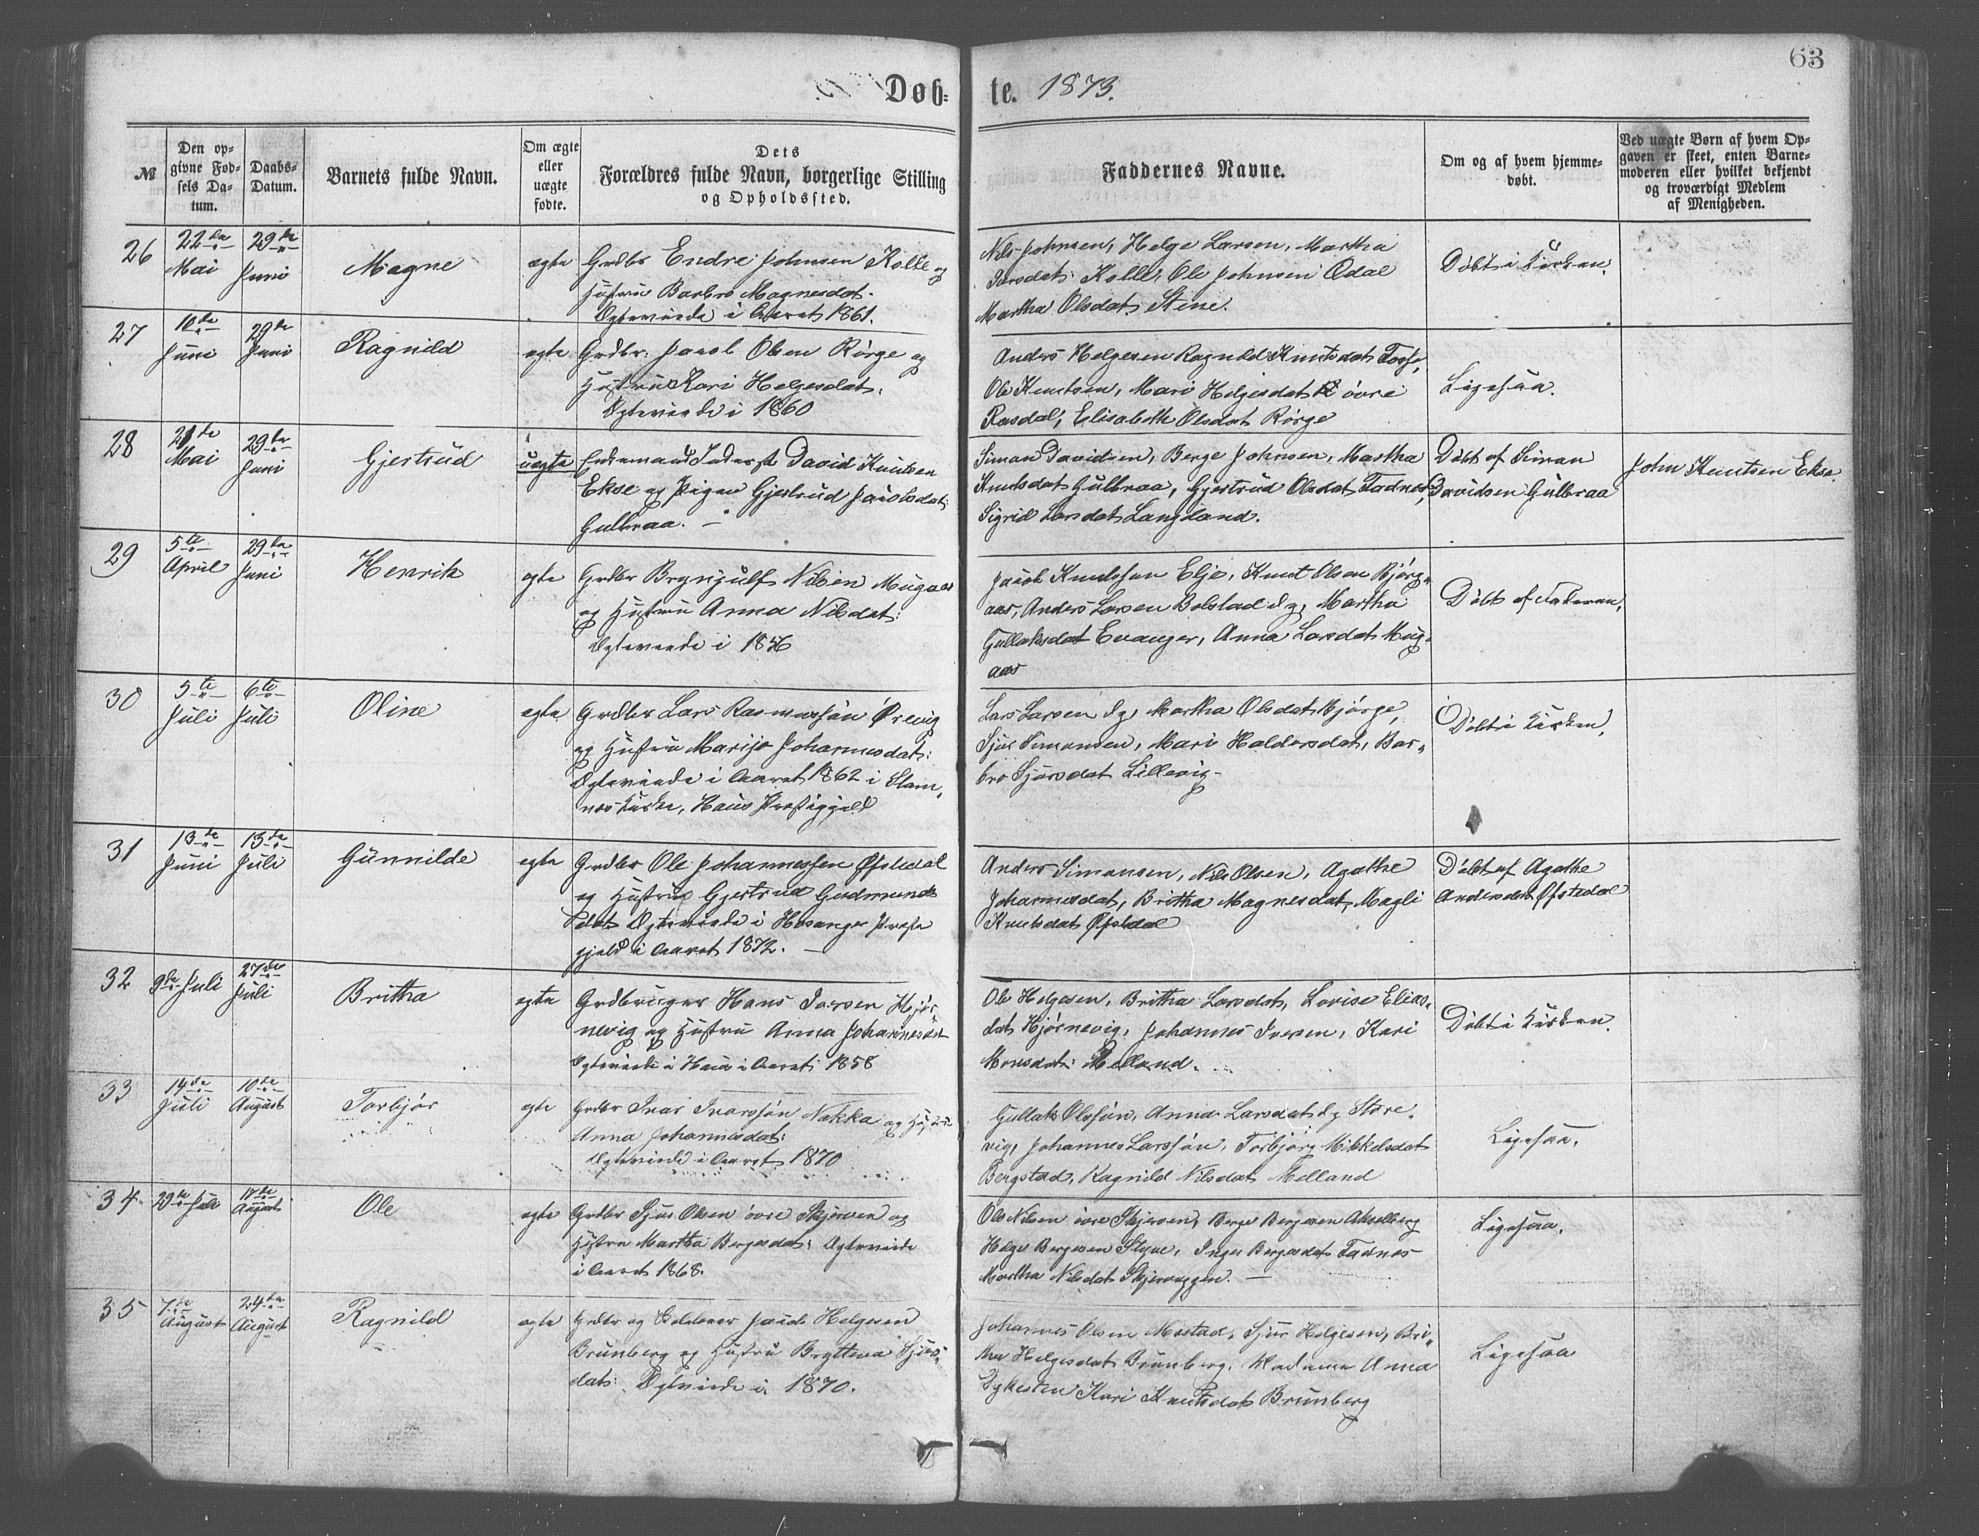 63
Døb-
te. 1873.
№
Den op-
givne Fød-
sels Da-
tum.
Daabs-
Datum.
Barnets fulde Navn.
Om ægte
eller
uægte
fødte.
Dets
Forældres fulde Navn, borgerlige Stilling
og Opholdssted.
Faddernes Navne.
Om og af hvem hjemme-
døbt.
Ved uægte Børn af hvem Op-
gaven er skeet, enten Barne-
moderen eller hvilket bekjendt
og troværdigt Medlem
af Menigheden.
26
22de
Mai
29de
Juni
Magne
ægte
Grdbr Endre Johnsen Kolle og
Hustru Barbro Magnesdat.
Ægteviede i Aaret 1861.
Nils Johnsen, Helge Larsen, Martha
Kolle, Ole Johnsen Ødal
Martha Olsdat. Stene.
Døbt i Kirken.
27
10de
Juni
29de
Juni
Ragnild
ægte
Grdbr. Jacob Olsen Rørge og
Hustru Kari Helgesdat.
Ægteviede i 1860
Anders Helgesen Ragnild Knutsdat Fosse,
Ole Knutsen, Mari Helgesdat øvre
Rasdal, Elisabeth Olsdat Rørge
Ligesaa.
28
21de
Mai
29de
Juni
Gjertrud
uægte
Enkemand Inderst David Knutsen
Ekse og Pigen Gjertrud Jacobsdat.
Gulbraa.
Simon Davidsen, Berge Johnsen, Martha
Knutsdat Gulbraa, Gjertrud Olsdat Fadnes,
Sigrid Larsdat Langeland.
Døbt af Simon
Davidsen Gulbraa
John Knutsen Ekse.
29
5te
April
29de
Juni
Henrik
ægte
Grdbr Brynjulf Nilsen Mugaas
og Hustru Anna Nilsdat.
Ægteviede i 1856
Jacob Knutsson Elje, Knut Olsen Bjørg-
aas, Anders Larsen Bolstad Ig, Martha
Gullaksdat Evanger, Anna Larsdat Mug-
aas
Døbt af Faderen.
30
5te
Juli
6te
Juli
Oline
ægte
Grdbr Lars Rasmussøn Ørevig
og Hustru Marijo Johannesdat:
Ægteviede i Aaret 1862 i Stam-
nes Kirke, Haus Præstegjeld
Lars Larsen Ig, Martha Olsdat Bjørge,
Sjur Simonsen, Mari Haldorsdat, Bar-
bro Sjursdat Lillevig
Døbt i Kirken.
31
13de
Juni
13de
Juli
Gunnilde
ægte
Grdbr Ole Johannessen Øfstedal
og Hustru Gjertrud Gudmunds
datr Ægteviede i Hosanger Præste
gjeld i Aaret 1872.
Anders Simonsen, Nils Olsen, Agathe
Johannesdat, Britha Magnesdat, Magli
Knutsdat Øfstedal
Døbt af Agathe
Andersdat Øfstedal
32
9de Juli
27de
Juli
Britha
ægte
Grdbruger Hans Iversen Hjør
nevig og Hustru Anna Johannesdat
Ægteviede i Haus i Aaret 1858
Ole Helgesen, Britha Larsdat, Lovise Elias-
dat Hjørnevig, Johannes Iversen, Kari
Monsdat: Melland.
Døbt i Kirken.
33
14de
Juli
10de
August
Torbjør
ægte
Grdbr Ivar Ivarssøn Nakka og Hustru
Anna Johannesdat:
Ægteviede i Aaret 1870
Gullak Olssøn, Anna Larsdat Ig Store-
vig, Johannes Larssøn, Torbjørg Mikkelsdat
Bergstad, Ragnild Nilsdat Melland
Ligesaa.
34
29de Juli
17de
August
Ole
ægte
Grdbr Sjur Olsen øvre Skjerven og
Hustru Martha Bergesdat: Ægteviede
i Aaret 1868.
Ole Nilsen øvre Skjerven, Berge Bergesen Akselberg
Helge Bergesen Styve, Inger Bergesdat Fadnes
Martha Nilsdat Skjerveggen.
Ligesaa.
35
7de
August
24de
August
Ragnild
ægte
Grdbr og Jacob Helgesen
Brunberg og Hustru Brytteva Sjurs-
dat: Ægteviede i 1870.
Johannes Olsen Mostad, Sjur Helgesen, Bri-
tha Helgesdat Brunberg, Madame Anna
Dykesten Kari Knutsdat Brunberg
Ligesaa